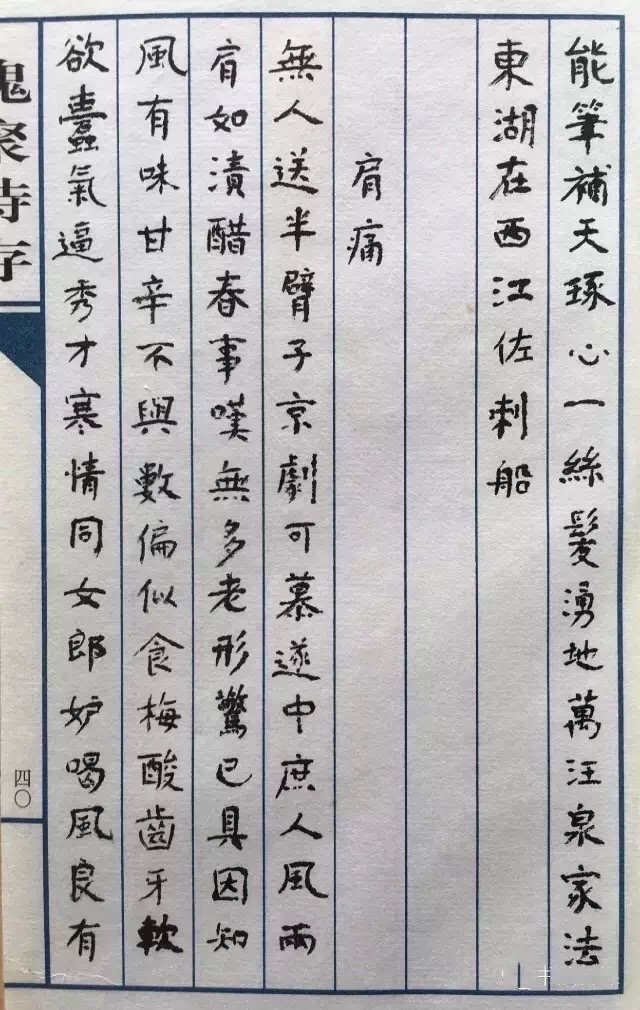 能筆補天琢心一絲髮湧地萬汪泉家法
東湖在西江佐刺船
肩痛
無人送半臂子京劇可慕遂中庶人風兩
肩如漬醋春事嘆無多老形驚已具因知
風有味甘辛不與數偏似食梅酸齒牙軟
欲蠹氣逼秀才寒情同女郎妒喝風良有
槐聚詩存
四〇